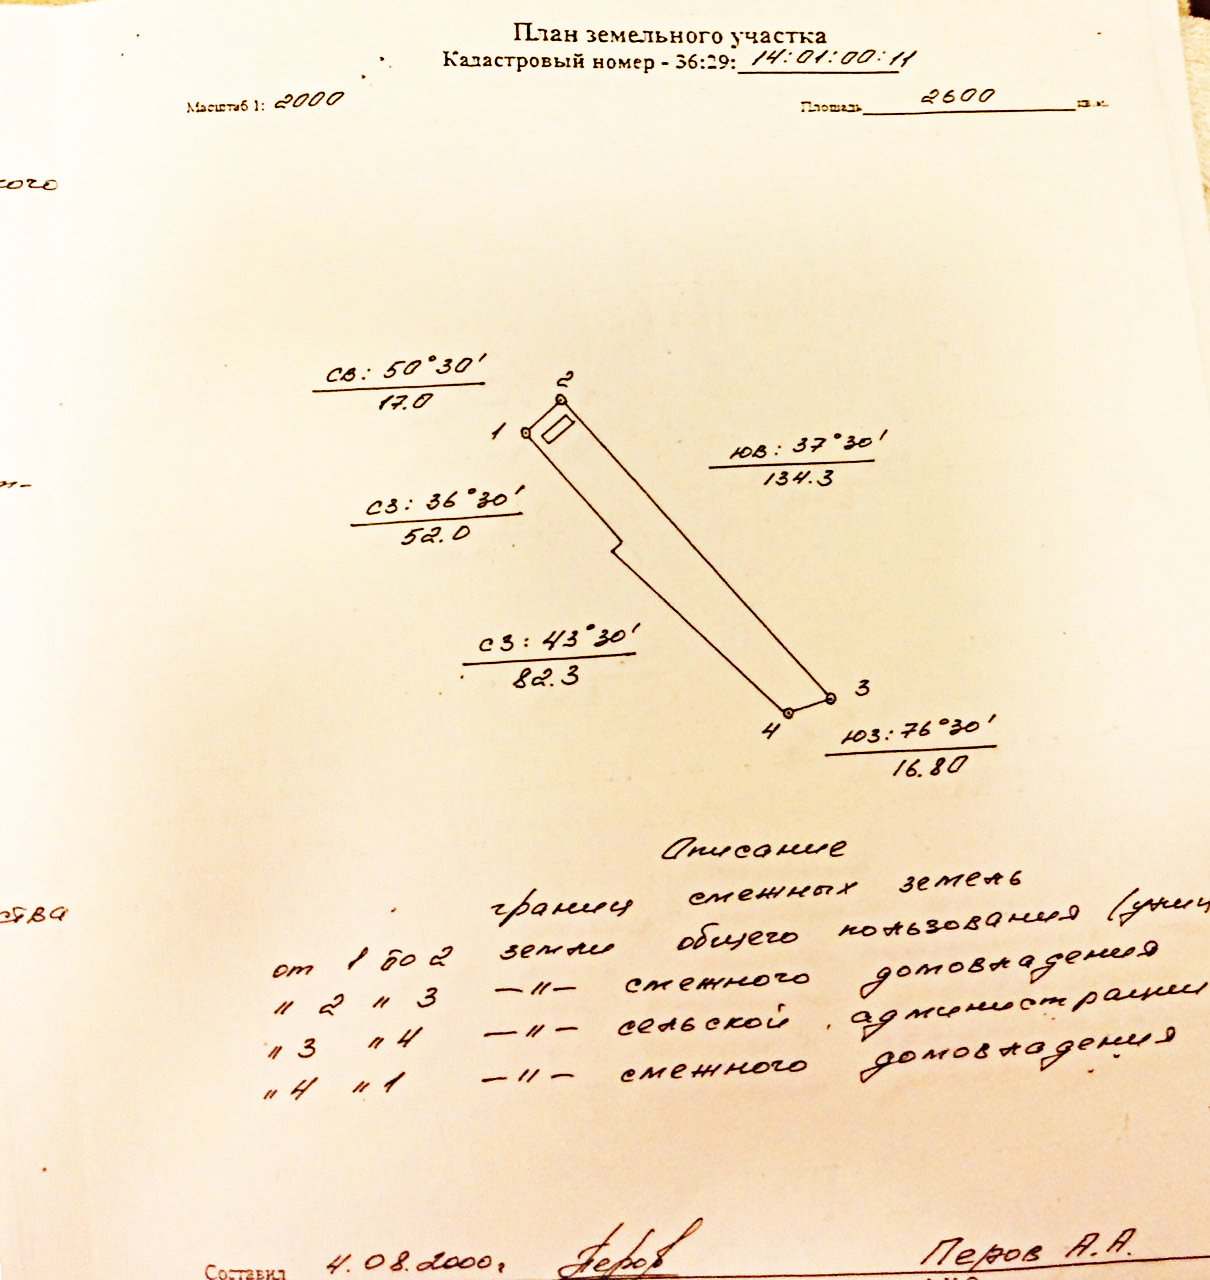 План земельного участка
Кадастровый номер - 36:29: 14:01:00:11
Масштаб 1: 2000
Площадь 2600 кв.м.
кого
СВ: 50°30'
17.0
2
1
ЮВ: 37°30'
134.3
СЗ: 36°30'
52.0
СЗ: 43°30'
82.3
3
4
ЮЗ: 76°30'
16.80
Описание
границ смежных земель
от 1 до 2 земли общего пользования (улиц
" 2 " 3 —"— смежного домовладения
" 3 " 4 —"— сельской администрации
" 4 " 1 —"— смежного домовладения
ства
Составил 4.08.2000г Перов А.А.